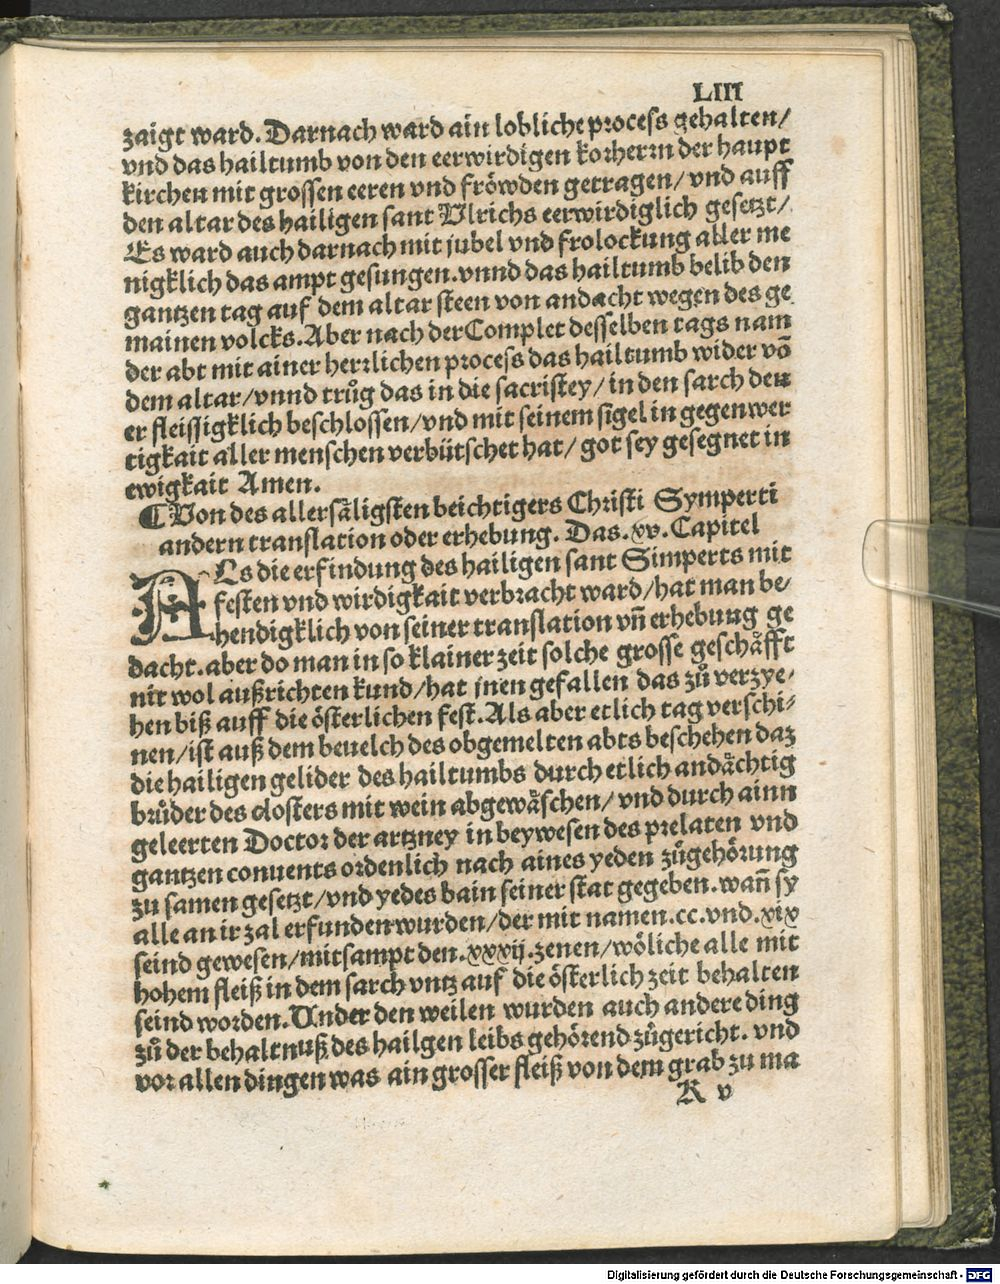 LIII
zaigt ward. Darnach ward ain lobliche process gehalten/
vnd das hailtumb von den eerwirdigen korherrn der haupt
kirchen mit grossen eeren vnd fröwden getragen/ vnd auff
den altar des hailigen sant Ulrichs eerwirdiglich gesetzt/
Es ward auch darnach mit jubel vnd frolockung aller me
nigklich das ampt gesungen. vnnd das hailtumb belib den
gantzen tag auf dem altar steen von andacht wegen des ge
mainen volcks. Aber nach der Complet desselben tags nam
der abt mit ainer herrlichen process das hailtumb wider võ
dem altar/ vnnd trůg das in die sacristey/ in den sarch den
er fleissigklich beschlossen/ vnd mit seinem sigel in gegenwer
tigkait aller menschen verbütschet hat/ got sey gesegnet in
ewigkait Amen.
¶ Von des allersäligsten beichtigers Christi Symperti
andern translation oder erhebung. Das. xv. Capitel
ALs die erfindung des hailigen sant Simperts mit
festen vnd wirdigkait verbracht ward/ hat man be/
hendigklich von seiner translation vñ erhebung ge
dacht. aber do man in so klainer zeit solche grosse geschäfft
nit wol außrichten kund/ hat jnen gefallen das zů verzye/
hen biß auff die österlichen fest. Als aber etlich tag verschi/
nen/ ist auß dem beuelch des obgemelten abts beschehen daz
die hailigen gelider des hailtumbs durch etlich andächtig
brůder des closters mit wein abgewäschen/ vnd durch ainn
geleerten Doctor der artzney in beywesen des prelaten vnd
gantzen conuents ordenlich nach aines yeden zůgehörung
zu samen gesetzt/ vnd yedes bain seiner stat gegeben. wañ sy
alle an ir zal erfunden wurden/ der mit namen. cc. vnd. xix
seind gewesen/ mitsampt den. xxxij. zenen/ wöliche alle mit
hohem fleiß in dem sarch vntz auf die österlich zeit behalten
seind worden. Under den weilen wurden auch andere ding
zů der behaltnuß des hailgen leibs gehörend zůgericht. vnd
vor allen dingen was ain grosser fleiß von dem grab zu ma
K v
Digitalisierung gefördert durch die Deutsche Forschungsgemeinschaft - DFG